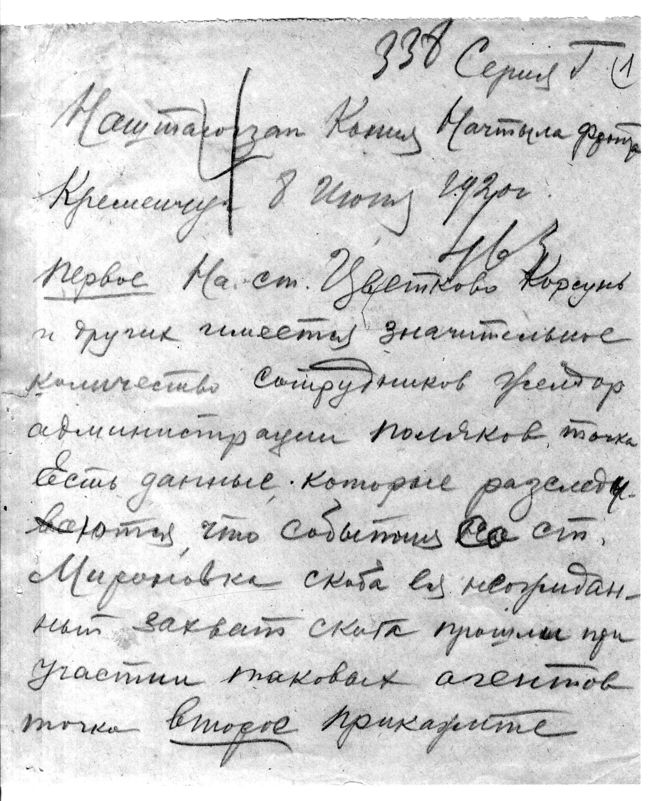 338 Серия Г (1
Наштаюгзап Копия Начтыла фронта
Кременчуг 8 Июня 1920 г.
первое На ст. Цветково Корсунь
и других имеется значительное
количество сотрудников желдор
администрации поляков точка
Есть данные, которые разследы-
ваются, что события на ст.
Мироновка скоба её неожидан-
ный захват скоба прошли при
участии таковых агентов
точка второе прикажите